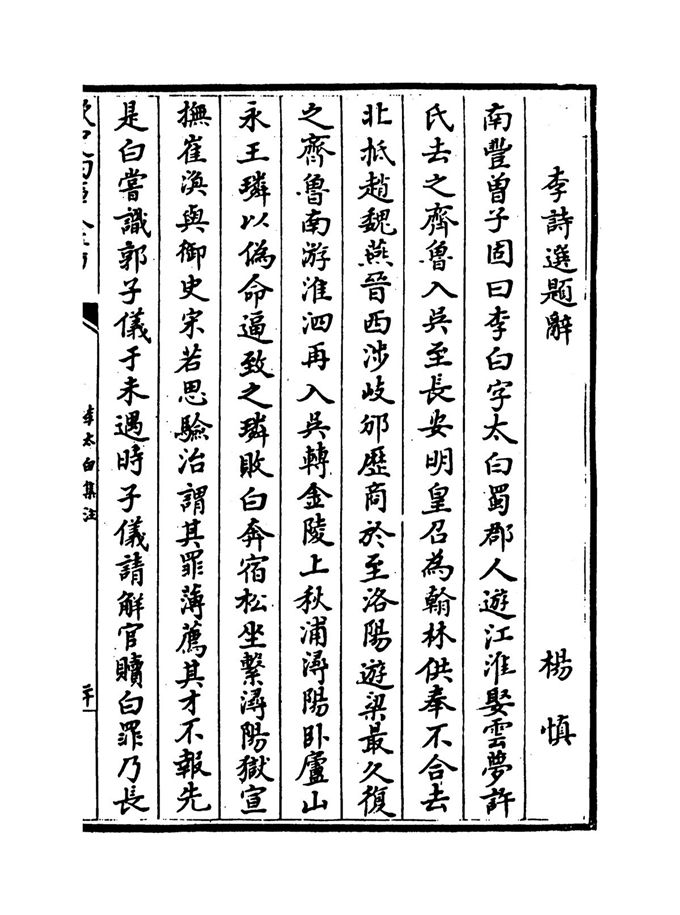 李詩選題辭 楊慎
南豐曾子固曰李白字太白蜀郡人遊江淮娶雲夢許
氏去之齊魯入吳至長安明皇召為翰林供奉不合去
北抵趙魏燕晉西涉岐邠歷商於至洛陽遊梁最久復
之齊魯南游淮泗再入吳轉金陵上秋浦潯陽卧廬山
永王璘以偽命逼致之璘敗白奔宿松坐繫潯陽獄宣
撫崔渙與御史宋若思驗治謂其罪薄薦其才不報先
是白嘗識郭子儀于未遇時子儀請解官贖白罪乃長
李太白集注